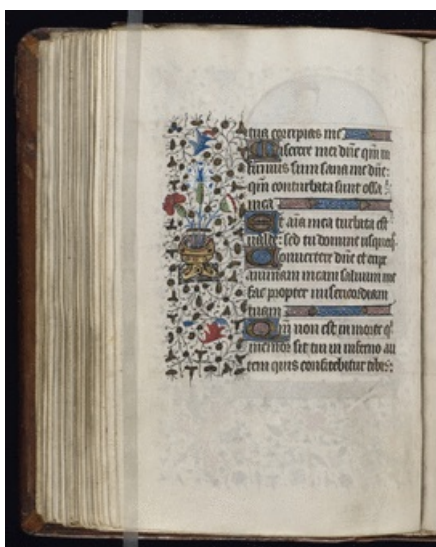 tua corripias me
Miserere mei dñe qm̃ in
firmus sum sana me dñe:
qm̃ conturbata sunt ossa
mea
Et aĩa mea turbata est
valde: sed tu domine usqueq̃
Convertere dñe et eripe
animam meam salvum me
fac propter misericordiam
tuam
Qm̃ non est in morte q̃
memor sit tui in inferno au
tem quis confitebitur tibi: